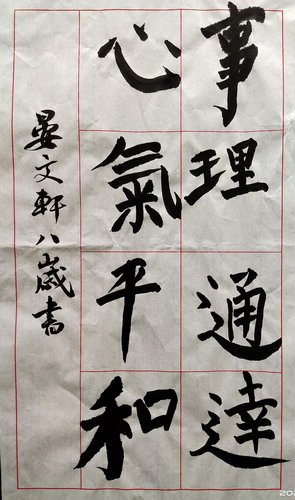 事理通達
心氣平和
晏文軒八歲書